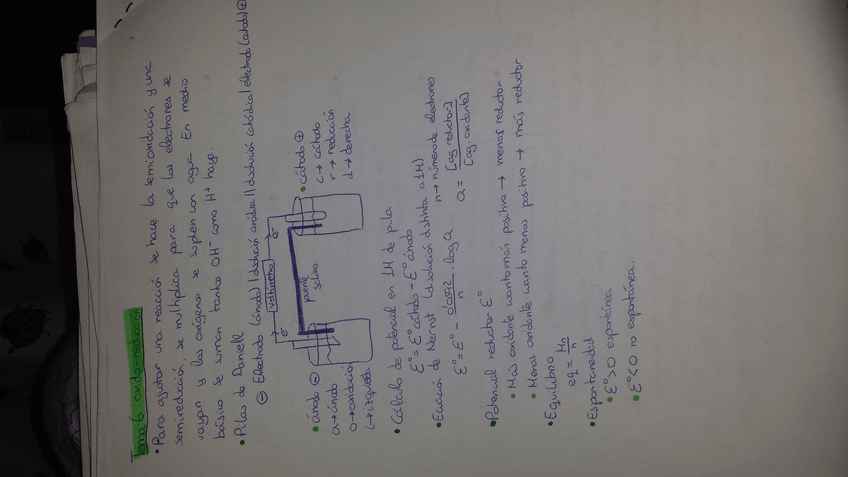 Tema 6 oxido-reducción
• Para ajustar una reacción se hace la semioxidación y una
semireducción, se multiplica para que los electrones se
vayan y los oxígenos se suplen con agua. En medio
básico se suman tanto OH⁻ como H⁺ haya.
• Pilas de Daniell
⊖ Electrodo (ánodo) | disolución anódica || disolución catódica | electrodo (cátodo) ⊕
voltímetro
e⁻
e⁻
puente
salino
• ánodo ⊖
a → ánodo
o → oxidación
i → izquierda
• cátodo ⊕
c → cátodo
r → reducción
d → derecha
• Cálculo de potencial en 1M de pila
Ɛ° = Ɛ° cátodo - Ɛ° ánodo
• Ecuación de Nernst (disolución distinta a 1M)
n → número de electrones
Ɛ° = Ɛ° - 0'0592/n · log Q
Q = [ag. reductor]/[ag. oxidante]
• Potencial reductor Ɛ°
• Más oxidante cuanto más positivo → menos reductor
• Menos oxidante cuanto menos positivo → más reductor
• Equilibrio
eq = Mn/n
• Espontaneidad
• Ɛ° > 0 espontánea
• Ɛ° < 0 no espontánea.